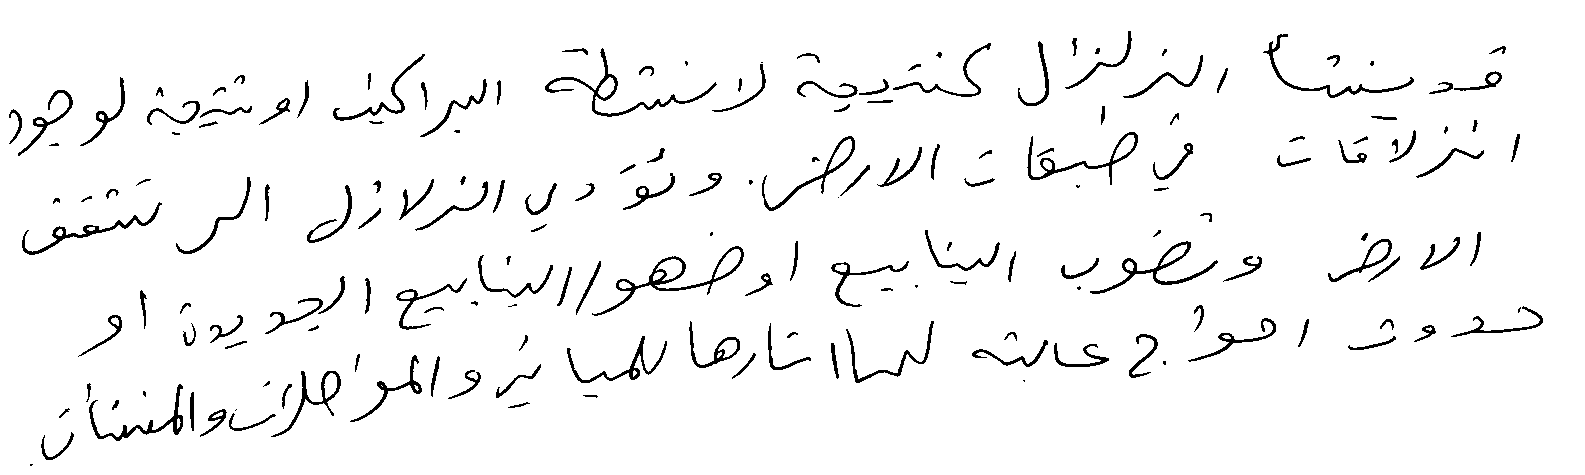 قد ينشأ الزلزال كنتيجة لانشطة البراكين او نتيجة لوجود
انزلاقات في طبقات الارض. وتؤدي الزلازل الى تشقق
الارض ونضوب الينابيع او ضهور الينابيع الجديدة او
حدوث امواج عالية لها اثارها للمباني والمواصلات والمنشأت.